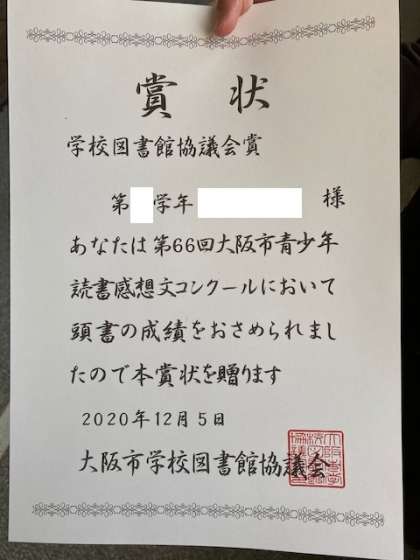 賞状
学校図書館協議会賞
第 学年 様
あなたは第66回大阪市青少年
読書感想文コンクールにおいて
頭書の成績をおさめられまし
たので本賞状を贈ります
2020年12月5日
大阪市学校図書館協議会